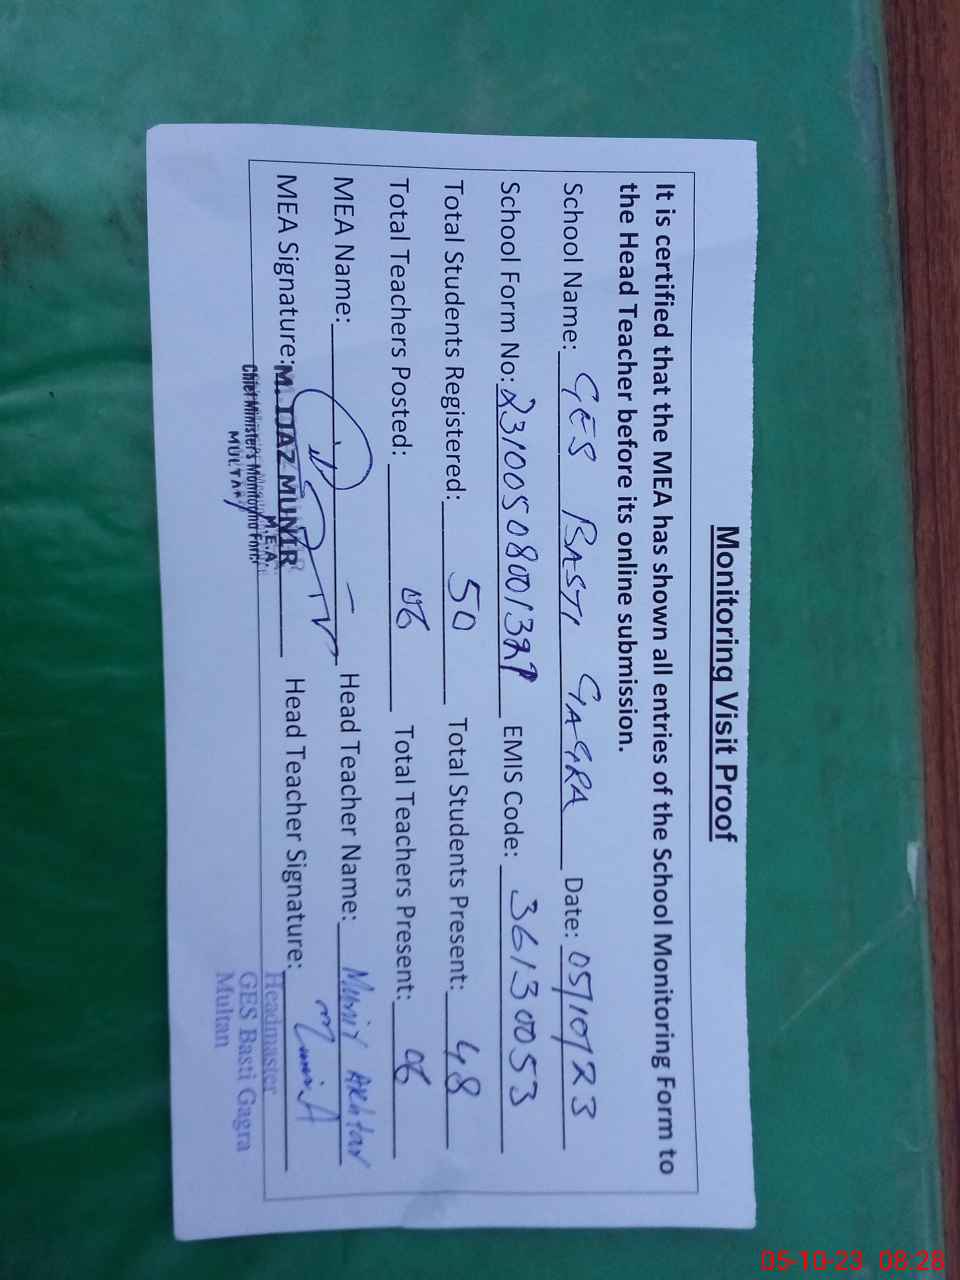 Monitoring Visit Proof
It is certified that the MEA has shown all entries of the School Monitoring Form to
the Head Teacher before its online submission.
School Name: GES BASTI GAGRA Date: 05/10/23
School Form No: EMIS Code: 36130053
Total Students Registered: 50 Total Students Present: 48
Total Teachers Posted: 06 Total Teachers Present: 06
MEA Name: Head Teacher Name: Munir Akhtar
MEA Signature: M. IJAZ MUNIR Head Teacher Signature:
M.E.A.
Chief Minister's Monitoring Force
MULTAN
Headmaster
GES Basti Gagra
Multan
05-10-23 08:28